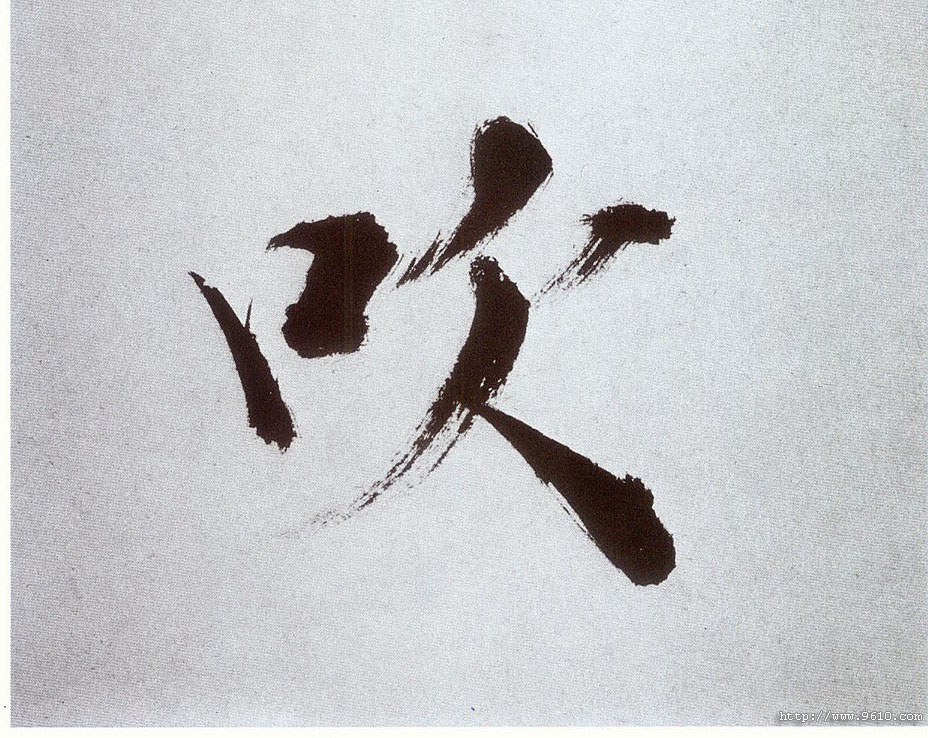 吹
http://www.9610.com